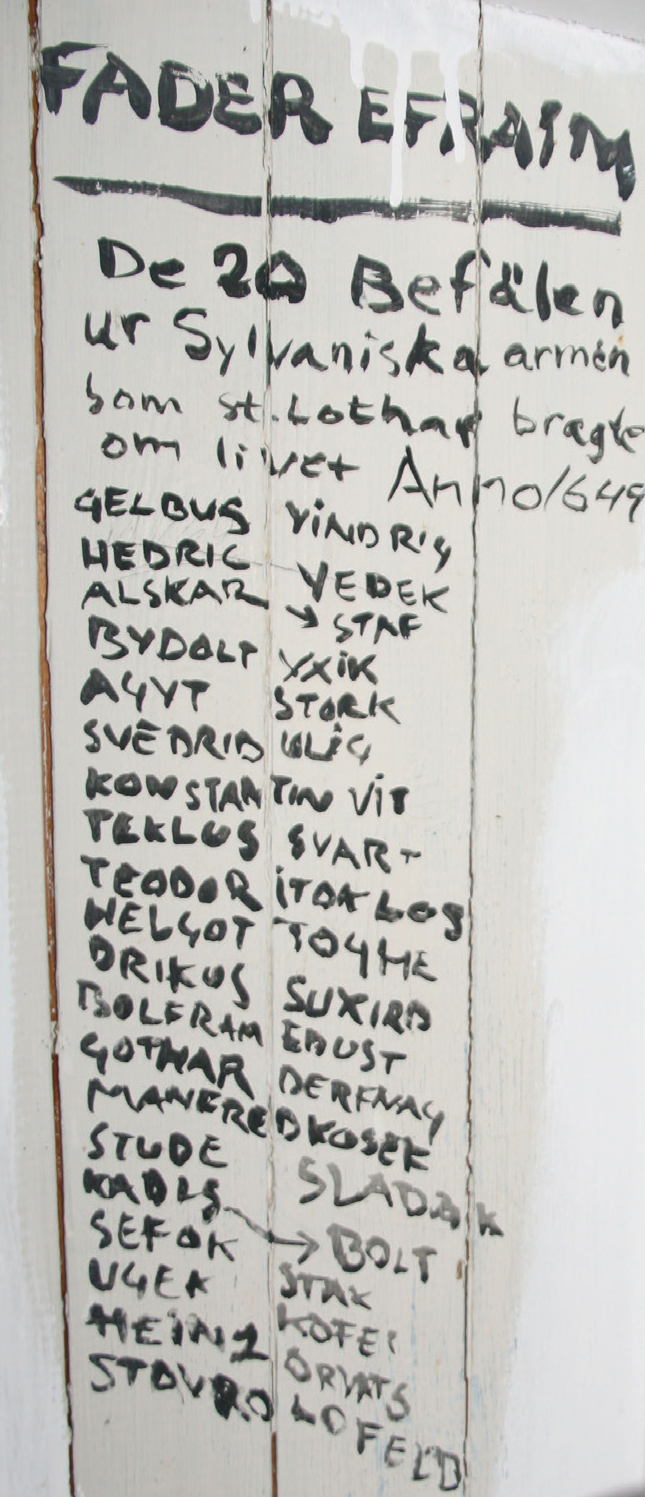 FADER EFRAIM
De 20 Befälen
ur Sylvaniska armén
som st. Lothar bragte
om livet Anno 1649
GELBUS VINDRIG
HEDRIC VEDEK
ALSKAR → STAF
BYDOLT YXIK
AGYT STORK
SVEDRID ULIG
KONSTANTIN VIT
TEKLUS SVART
TEODOR ITOKLOS
HELGOT TOGHE
DRIKUS SUXIRD
BOLFRAM EDUST
GOTHAR DERFNAG
MANFRED KOSEK
STUDE SLADAK
KADLS → BOLT
SEFOK STAK
UGEK KOFEI
HEINZ ORVATS
STOVRO LOFELD